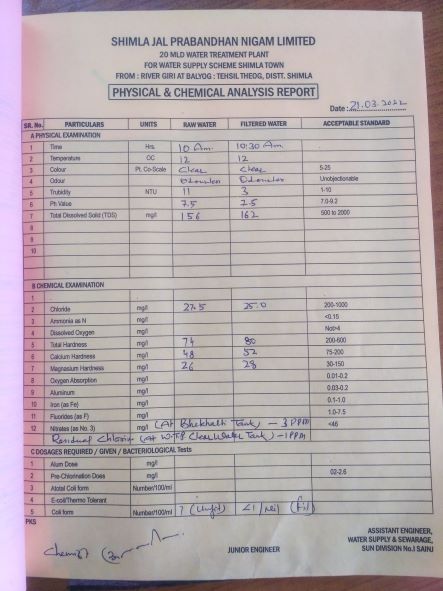 SHIMLA JAL PRABANDHAN NIGAM LIMITED
20 MLD WATER TREATMENT PLANT
FOR WATER SUPPLY SCHEME SHIMLA TOWN
FROM : RIVER GIRI AT BALYOG : TEHSIL THEOG, DISTT. SHIMLA
PHYSICAL & CHEMICAL ANALYSIS REPORT
Date : 21.03.2022
SR. No. PARTICULARS UNITS RAW WATER FILTERED WATER ACCEPTABLE STANDARD
A PHYSICAL EXAMINATION
1 Time Hrs. 10 Am 10:30 Am
2 Temperature OC 12 12
3 Colour Pt. Co-Scale Clear Clear 5-25
4 Odour Odourless Odourless Unobjectionable
5 Trubidity NTU 11 3 1-10
6 Ph Value 7.5 7.5 7.0-9.2
7 Total Dissolved Solid (TDS) mg/l 156 162 500 to 2000
8
9
10
B CHEMICAL EXAMINATION
1
2 Chloride mg/l 27.5 25.0 200-1000
3 Ammonia as N mg/l <0.15
4 Dissolved Oxygen mg/l Not>4
5 Total Hardness mg/l 74 80 200-600
6 Calcium Hardness mg/l 48 52 75-200
7 Magnesium Hardness mg/l 26 28 30-150
8 Oxygen Absorption mg/l 0.01-0.2
9 Aluminum mg/l 0.03-0.2
10 Iron (as Fe) mg/l 0.1-1.0
11 Fluorides (as F) mg/l 1.0-7.5
12 Nitrates (as No. 3) mg/l (At Bhekhalti Tank) - 3 PPM <46
Residual Chlorine (At W.T.P Clear Water Tank) - 1 PPM
C DOSAGES REQUIRED / GIVEN / BACTERIOLOGICAL Tests
1 Alum Dose mg/l
2 Pre-Chlorination Does mg/l 02-2.6
3 Atotal Coli form Number/100/ml
4 E-coli/Thermo Tolerant
5 Coli form Number/100/ml 7 <1 / Nil
PKS
Chemist
JUNIOR ENGINEER
ASSISTANT ENGINEER,
WATER SUPPLY & SEWARAGE,
SUN DIVISION No.I SAINJ